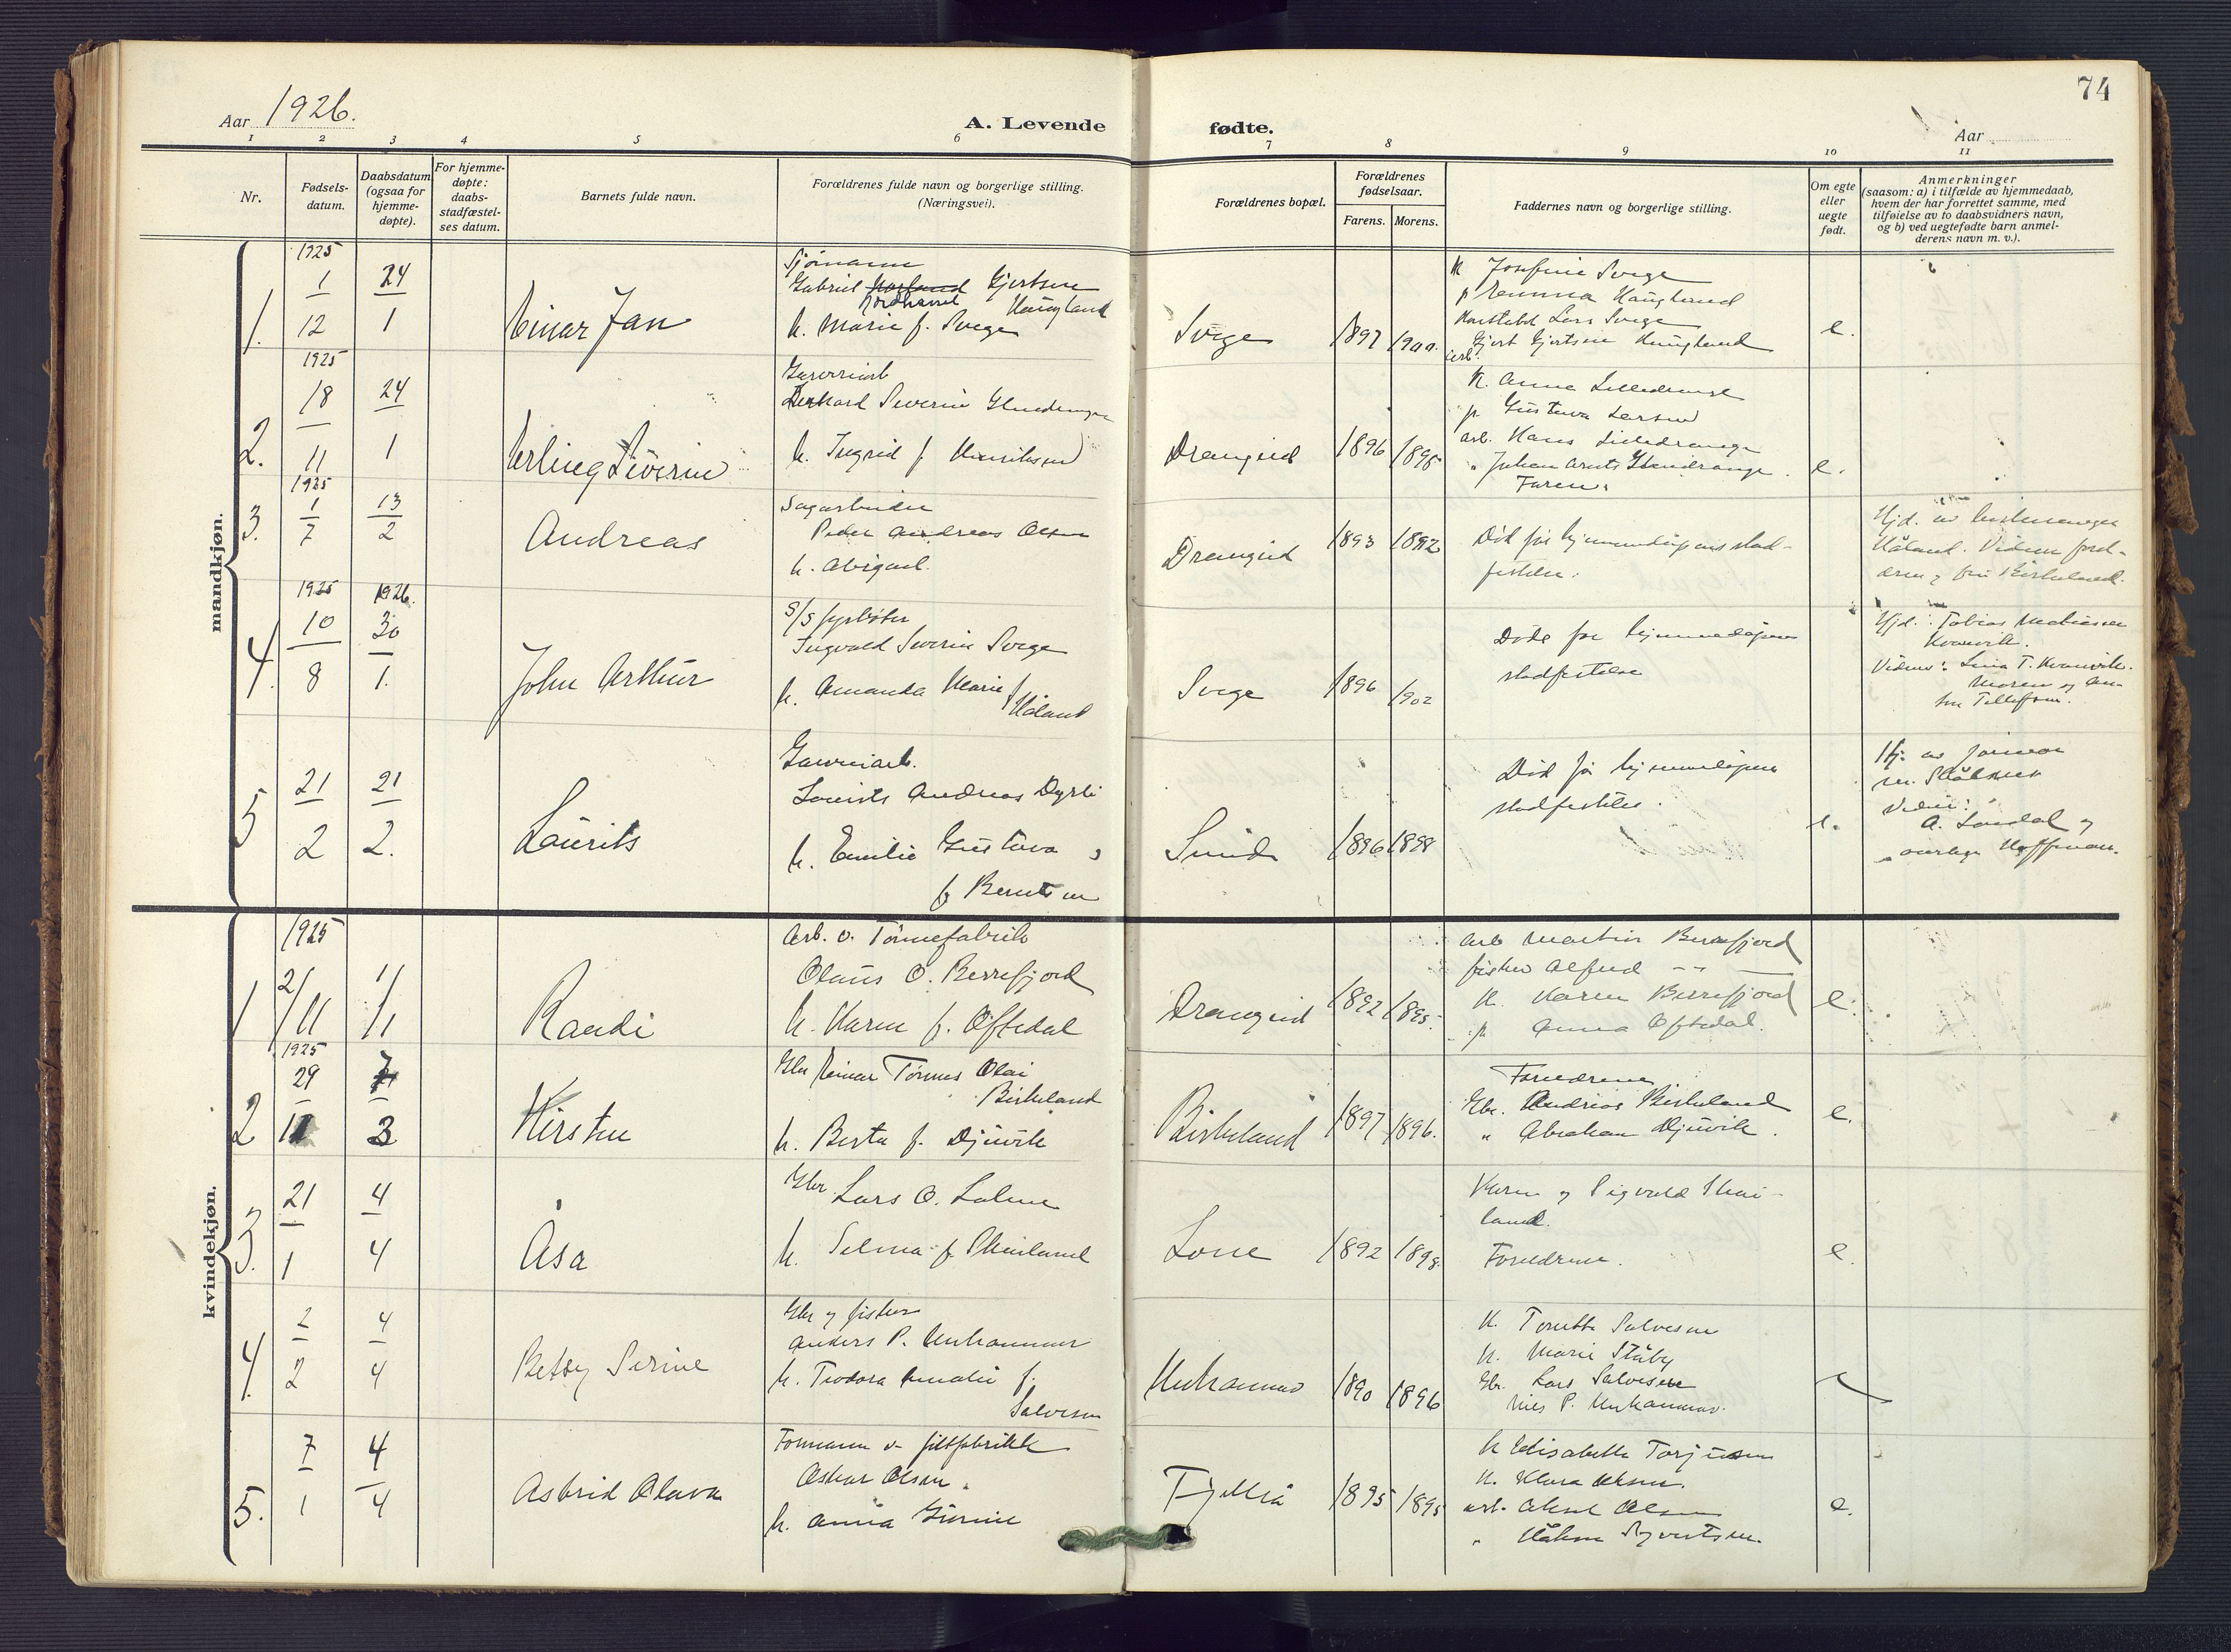 74
Aar 1926.
A. Levende fødte.
Aar
1 2 3 4 5 6 7 8 9 10 11
Nr.
Fødsels-
datum.
Daabsdatum
(ogsaa for
hjemme-
døpte).
For hjemme-
døpte:
daabs-
stadfæstel-
ses datum.
Barnets fulde navn.
Forældrenes fulde navn og borgerlige stilling.
(Næringsvei).
Forældrenes bopæl.
Forældrenes
fødselsaar.
Farens. Morens.
Faddernes navn og borgerlige stilling.
Om egte
eller
uegte
født.
Anmerkninger
(saasom: a) i tilfælde av hjemmedaab,
hvem der har forrettet samme, med
tilføielse av to daabsvidners navn,
og b) ved uegtefødte barn anmel-
derens navn m. v.).
mandkjøn.
1.
1925
1
12
24
1
Einar Jan
Sjømann
Gabriel Gjertsen
Haugland
h. Marie f. Svege
Svege
1897
K Josefine Svege
p Emma Haugland
Lars Svege
Gjert Gjertsen Haugland
e.
2.
1925
18
11
24
1
Erling Severin
Garveriarb
Severin
h. Ingrid f Henriksen
Drangeid
1896
1895
K. Anna
p. Gustava Larsen
arb. Hans
Faren.
e.
3.
1925
1
7
13
2
Andreas
Sagarbeider
Peder Andreas Olsen
h. Abigael.
Drangeid
1893
1892
Död før hjemmedåpens stad-
festelse.
Hjd. av
Håland. Vidner foræl-
drene og fru Birkeland.
4.
1925
10
8
1926.
30
1.
John Arthur
S/S fyrbøter
Ingvald Severin Svege
h. Amanda Marie f
Håland
Svege
1896
1902
Döde før hjemmedåpens
stadfestelse
Hjd.: Tobias Mathiassen
Kvanvik.
Vidner: Lina T. Kvanvik.
Moren og
Tellefsen.
5
21
2
21
2.
Laurits
Garveriarb.
Laurits Andreas Dyrli
h. Emilie Gustava
f Berntsen
Sunde
1896
1898
Död før hjemmedåpens
stadfestelse.
e.
Hj. av jormor
Vidner:
A.
Hoffman.
kvindekjøn.
1
1925
2/11
1/1
Randi
Arb. v. Tønnefabrik
Olaus O. Berrefjord
h. Karen f. Øftedal
Drangeid
1892
1895.
Arb Martin Berrefjord
fisker Alfred — —
K. Karen Berrefjord
p Anna Øftedal.
e.
2
1925
29
11
3
Kirsten
Gbr Einar Tønnes Olai
Birkeland
h. Berta f. Djuvik
Birkeland
1897
1896.
Foreldrene
Gbr. Andreas Birkeland
" Abraham Djuvik.
e.
3.
21
1
4
4
Åsa
Gbr Lars O. Lohne
h. Selma f. Skeiland
Lone
1892
1898.
Karen og Sigvald Skei-
land.
Foreldrene.
e.
4.
2
2
4
4
Betsy Serine
Gbr og fisker
Anders P. Unhammer
h. Teodora Amalie f.
Salvesen
Unhammer
1890
1896
K. Tonette Salvesen
K. Marie Støby
Gbr. Lars Salvesen
Nils P. Unhammer.
5.
7
1
4
4
Astrid Olava
Formann v. filtfabrikk
Oskar Olsen.
h. Anna Gurine
Fjellså
1895
1895
K Elisabeth Torjusen
K. Klara Olsen.
arb. Aksel Olsen
" Håkon Syvertsen.
e.